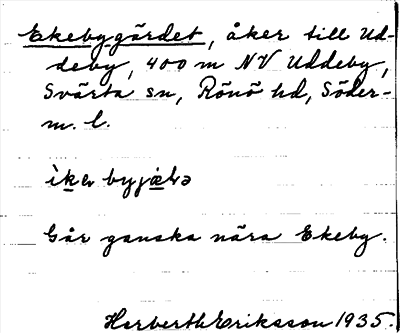 Ekeby-gärdet, åker till Ud-
deby, 400 m NV Uddeby,
Svärta sn, Rönö hd, Söder-
m. l.
Går ganska nära Ekeby.
Harberth Eriksson 1935.